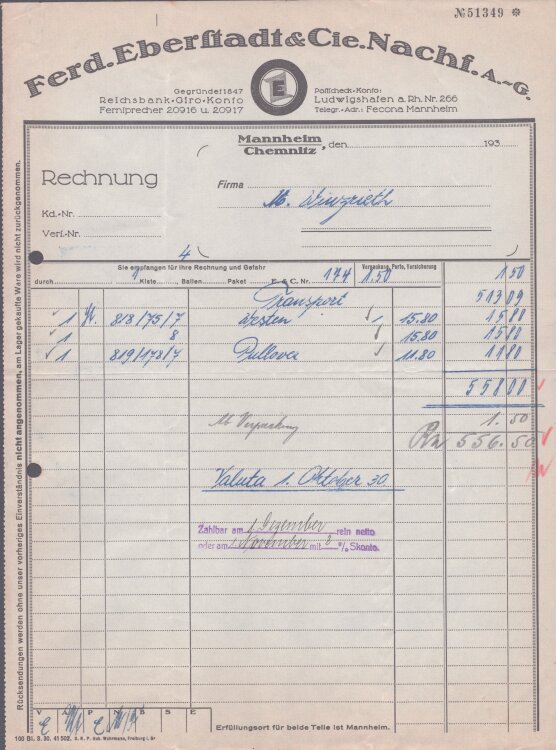 №51349 *
Ferd. Eberstadt & Cie. Nachf. A.-G.
Gegründet 1847
Reichsbank-Giro-Konto
Fernsprecher 20916 u. 20917
E
Postscheck-Konto:
Ludwigshafen a. Rh. Nr. 266
Telegr.-Adr.: Fecona Mannheim
Mannheim
Chemnitz, den 193
Rechnung
Firma M. Winzrieth
Kd.-Nr.
Verf.-Nr.
4
Sie empfangen für Ihre Rechnung und Gefahr
Verpackung, Porto, Versicherung
durch 1 Kiste Ballen Paket E. & C. Nr. 174 1.50 1 50
Transport 513 09
1 818/75/7 Westen 1 15.80 15 80
1 8 15.80 15 80
1 819/178/7 Pullover 11.80 11 80
558 00
Verpackung 1.50
556.50
Valuta 1. Oktober 30.
Zahlbar am 1 Dezember rein netto
oder am 1 November mit 2 % Skonto.
Rücksendungen werden ohne unser vorheriges Einverständnis nicht angenommen, am Lager gekaufte Ware wird nicht zurückgenommen.
V A P N B S E
Erfüllungsort für beide Teile ist Mannheim.
100 Bl. 8. 30. 41502.